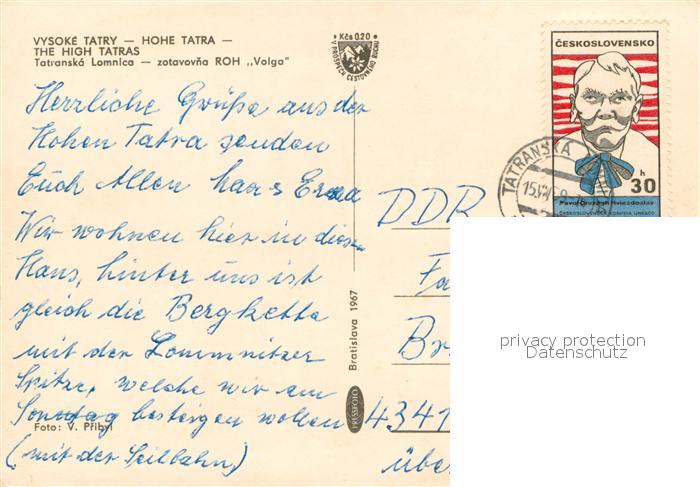 VYSOKÉ TATRY — HOHE TATRA —
THE HIGH TATRAS
Tatranská Lomnica — zotavovňa ROH „Volga"
Kčs 0,20
V PROSPECH CESTOVNÉHO RUCHU
ČESKOSLOVENSKO
h
30
Pavol Országh Hviezdoslav
TATRANSKÁ
Herrliche Grüße aus der
Hohen Tatra senden
Euch Allen Erna
Wir wohnen hier in diesem
Haus, hinter uns ist
gleich die Bergkette
mit der Lommnitzer
Spitze, welche wir am
Sonntag besteigen wollen
(mit der Seilbahn)
Foto: V. Přibyl
Bratislava 1967
PRESSFOTO
DDR
Fa
Br
4341
übe
privacy protection
Datenschutz